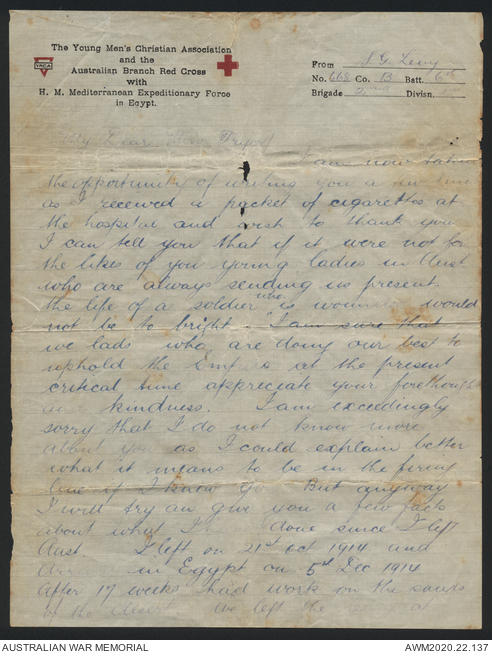 The Young Men's Christian Association
and the
Australian Branch Red Cross
with
H. M. Mediterranean Expeditionary Force
in Egypt.
YMCA
From S G Levy
No. 668 Co. B Batt. 6th
Brigade 2nd Divisn.
My Dear Miss
I am now taking
the opportunity of writing you a
as I received a packet of cigarettes at
the hospital and wish to thank you
I can tell you that if it were not for
the likes of you young ladies in Aust
who are always sending us present
the life of a soldier who is wounded would
not be to bright. I am sure that
we lads who are doing our best to
uphold the at the present
critical time appreciate your forethought
kindness. I am exceedingly
sorry that I do not know more
about you as I could explain better
what it means to be in the firing
line if I knew you But anyway
I will try an give you a few facts
about what I done since I left
Aust. I left on 21st oct 1914 and
in Egypt on 5th Dec 1914
After 17 weeks hard work on the sands
of the desert we left the at
AUSTRALIAN WAR MEMORIAL
AWM2020.22.137